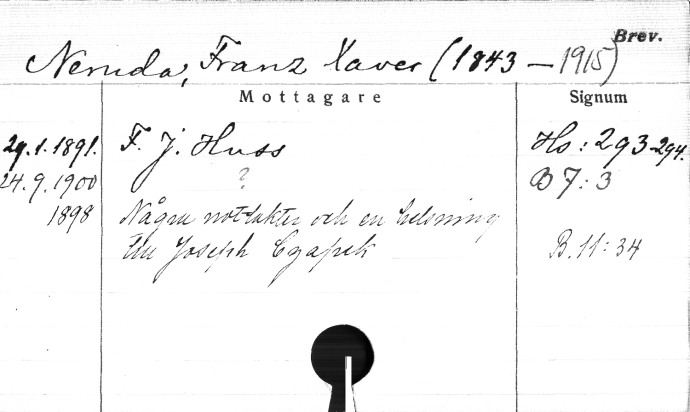 Brev.
Neruda, Franz Xaver (1843 – 1915)
Mottagare Signum
29.1.1891. F. J. Huss Hs: 293-294.
24.9.1900 ? B 7:3
1898 Några nottakter och en helsning
till Joseph Czapek B.11:34